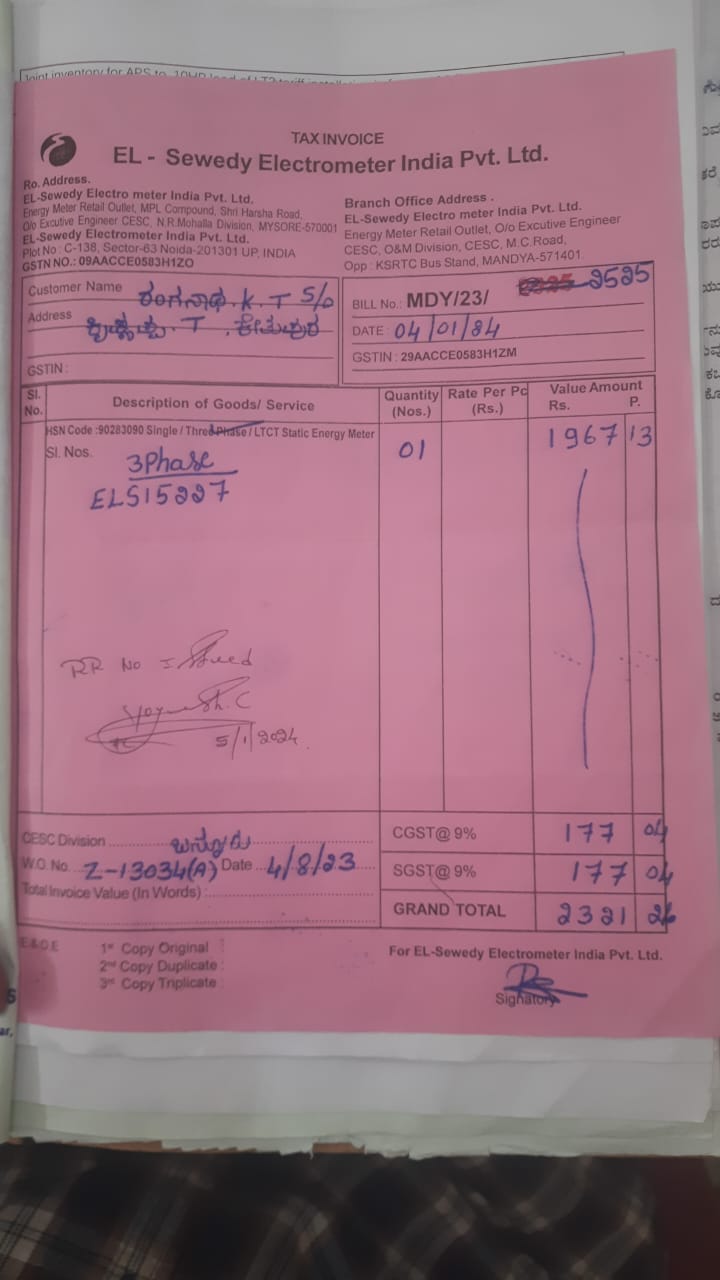 Joint inventory for APS to 10HP load of LT2 tariff
TAX INVOICE
EL - Sewedy Electrometer India Pvt. Ltd.
Ro. Address.
EL-Sewedy Electro meter India Pvt. Ltd.
Energy Meter Retail Outlet, MPL Compound, Shri Harsha Road,
O/o Excutive Engineer CESC, N.R.Mohalla Division, MYSORE-570001
EL-Sewedy Electrometer India Pvt. Ltd.
Plot No : C-138, Sector-63 Noida-201301 UP, INDIA
GSTN NO.: 09AACCE0583H1ZO
Branch Office Address .
EL-Sewedy Electro meter India Pvt. Ltd.
Energy Meter Retail Outlet, O/o Excutive Engineer
CESC, O&M Division, CESC, M.C.Road,
Opp : KSRTC Bus Stand, MANDYA-571401.
Customer Name ರಂಗನಾಥ. K. T S/o
Address T
GSTIN :
BILL No.: MDY/23/ 2525
DATE : 04/01/24
GSTIN : 29AACCE0583H1ZM
Sl. No. Description of Goods/ Service Quantity (Nos.) Rate Per Pc (Rs.) Value Amount Rs. P.
HSN Code :90283090 Single / Three Phase / LTCT Static Energy Meter
Sl. Nos. 3Phase 01 1967 13
ELS15227
RR No Issued
5/1/2024
CESC Division
W.O. No. Z-13034(A) Date 4/8/23
Total Invoice Value (In Words) :
CGST@ 9% 177 04
SGST@ 9% 177 04
GRAND TOTAL 2321 26
E & O E
1st Copy Original :
2nd Copy Duplicate :
3rd Copy Triplicate :
For EL-Sewedy Electrometer India Pvt. Ltd.
Signatory